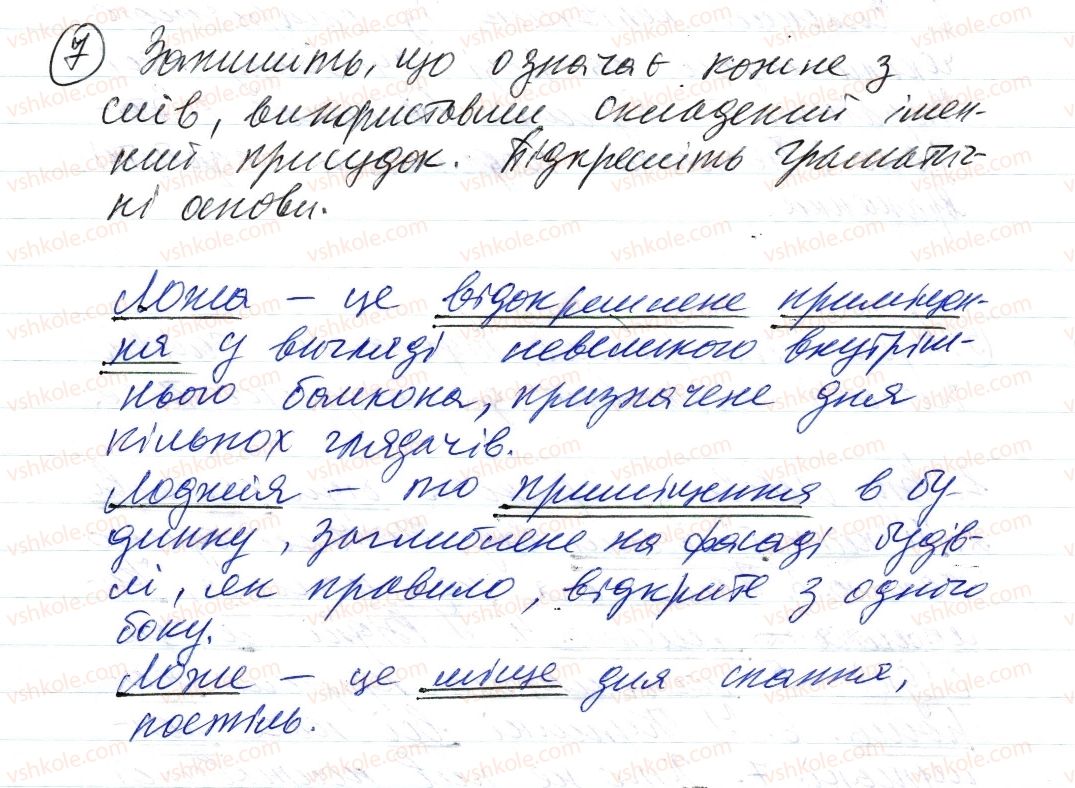 7 Запишіть, що означає кожне з
слів, використавши складений імен-
ний присудок. Підкресліть граматич-
ні основи.
Ложа – це відокремлене приміщен-
ня у вигляді невеликого внутріш-
нього балкона, призначене для
кількох глядачів.
Лоджія – то приміщення в бу-
динку, заглиблене на фасаді будів-
лі, як правило, відкрите з одного
боку.
Ложе – це місце для спання,
постіль.